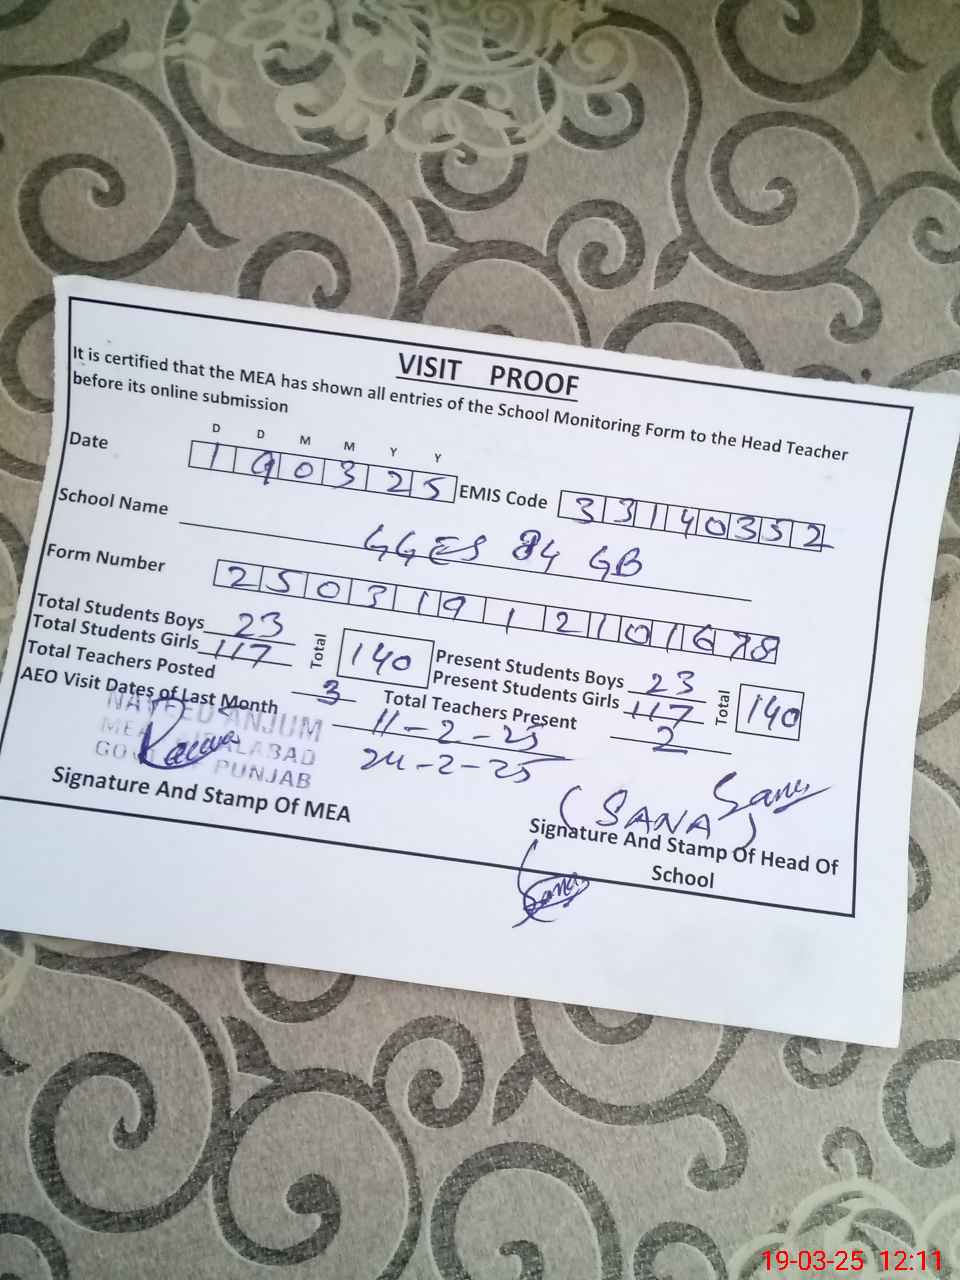 VISIT PROOF
It is certified that the MEA has shown all entries of the School Monitoring Form to the Head Teacher
before its online submission
D D M M Y Y
Date 190325 EMIS Code 33140352
School Name GGES 84 GB
Form Number 25031912101678
Total Students Boys 23 Total 140 Present Students Boys 23 Total 140
Total Students Girls 117 Present Students Girls 117
Total Teachers Posted 3 Total Teachers Present 2
AEO Visit Dates of Last Month 11-2-25
24-2-25
NAVEED ANJUM
MEA
PUNJAB
Signature And Stamp Of MEA
Sana
(SANA)
Signature And Stamp Of Head Of
School
Sana
19-03-25 12:11